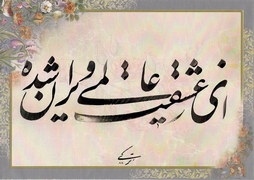 ای ز عشقت عالمی ویران شده